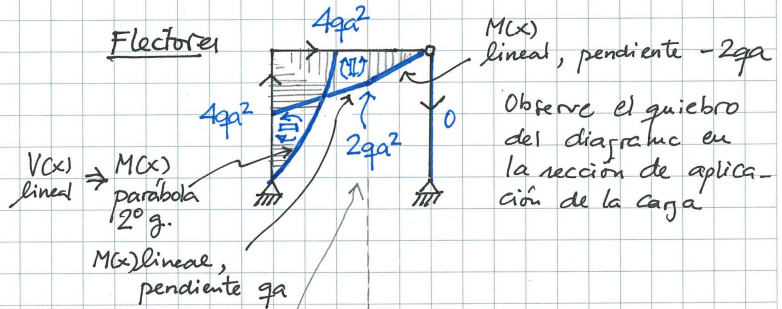 Flectores
4qa²
M(x)
lineal, pendiente -2qa
(II)
4qa²
(II)
2qa²
0
Observe el quiebro
del diagrama en
la sección de aplica-
ción de la carga
V(x) ⇒ M(x)
lineal
parábola
2º g.
M(x) lineal,
pendiente qa